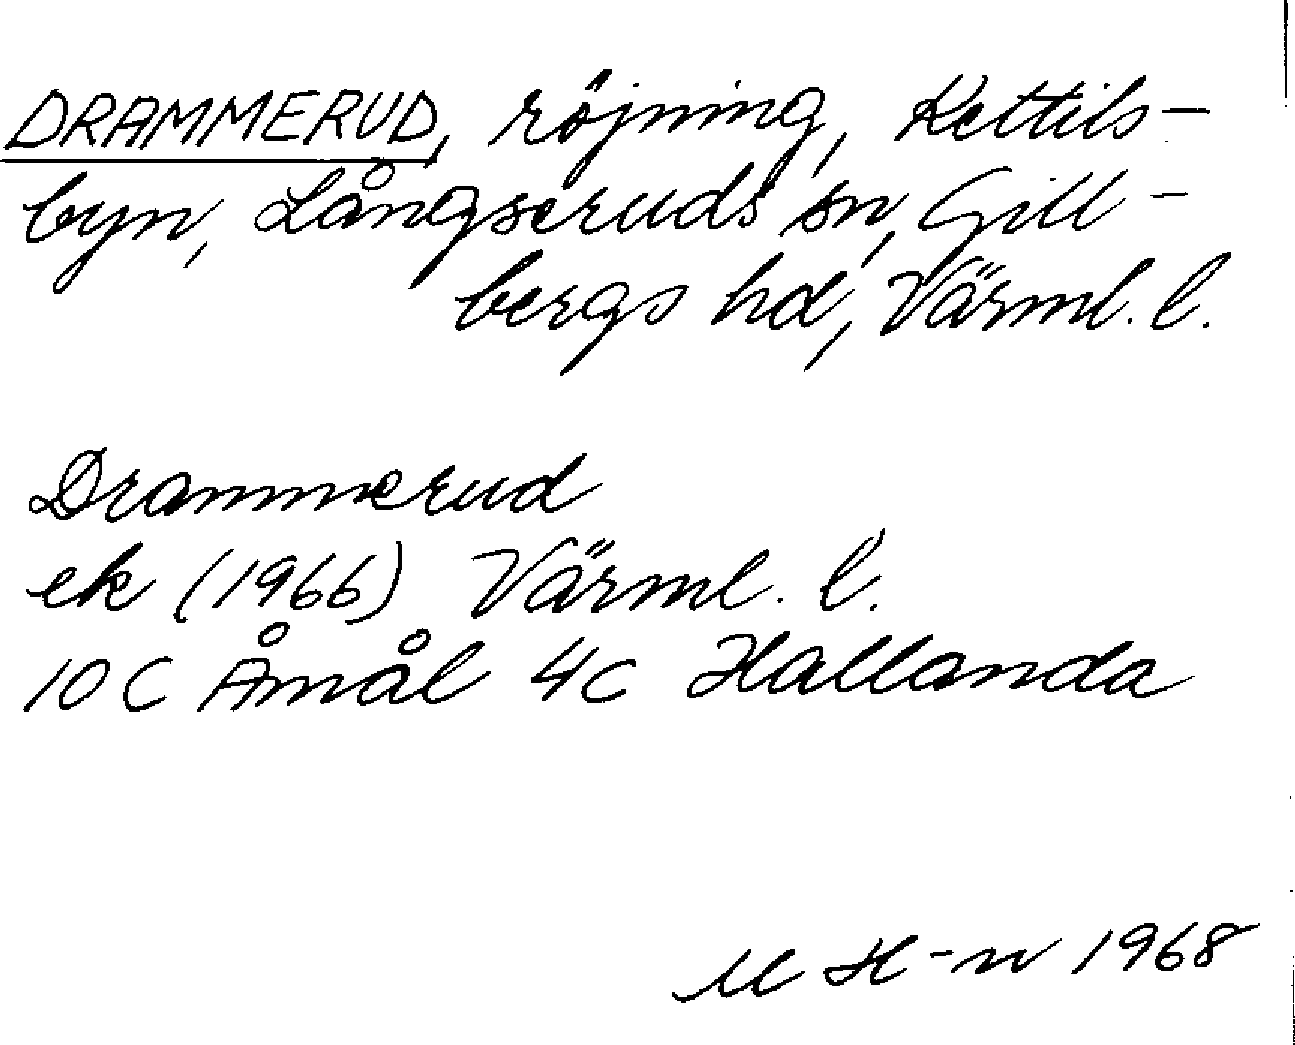 DRAMMERUD, röjning, Kettils-
byn, Långseruds sn, Gill-
bergs hd, Värml. l.
Drammerud
ek (1966) Värml. l.
10 C Åmål 4c Hallanda
M H-n 1968